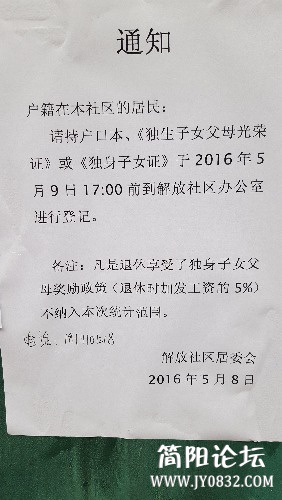 通知
户籍在本社区的居民：
请持户口本、《独生子女父母光荣
证》或《独身子女证》于 2016 年 5
月 9 日 17:00 前到解放社区办公室
进行登记。
备注：凡是退休享受了独身子女父
母奖励政策（退休时加发工资的 5%）
不纳入本次统计范围。
解放社区居委会
2016 年 5 月 8 日
简阳论坛
www.JY0832.com